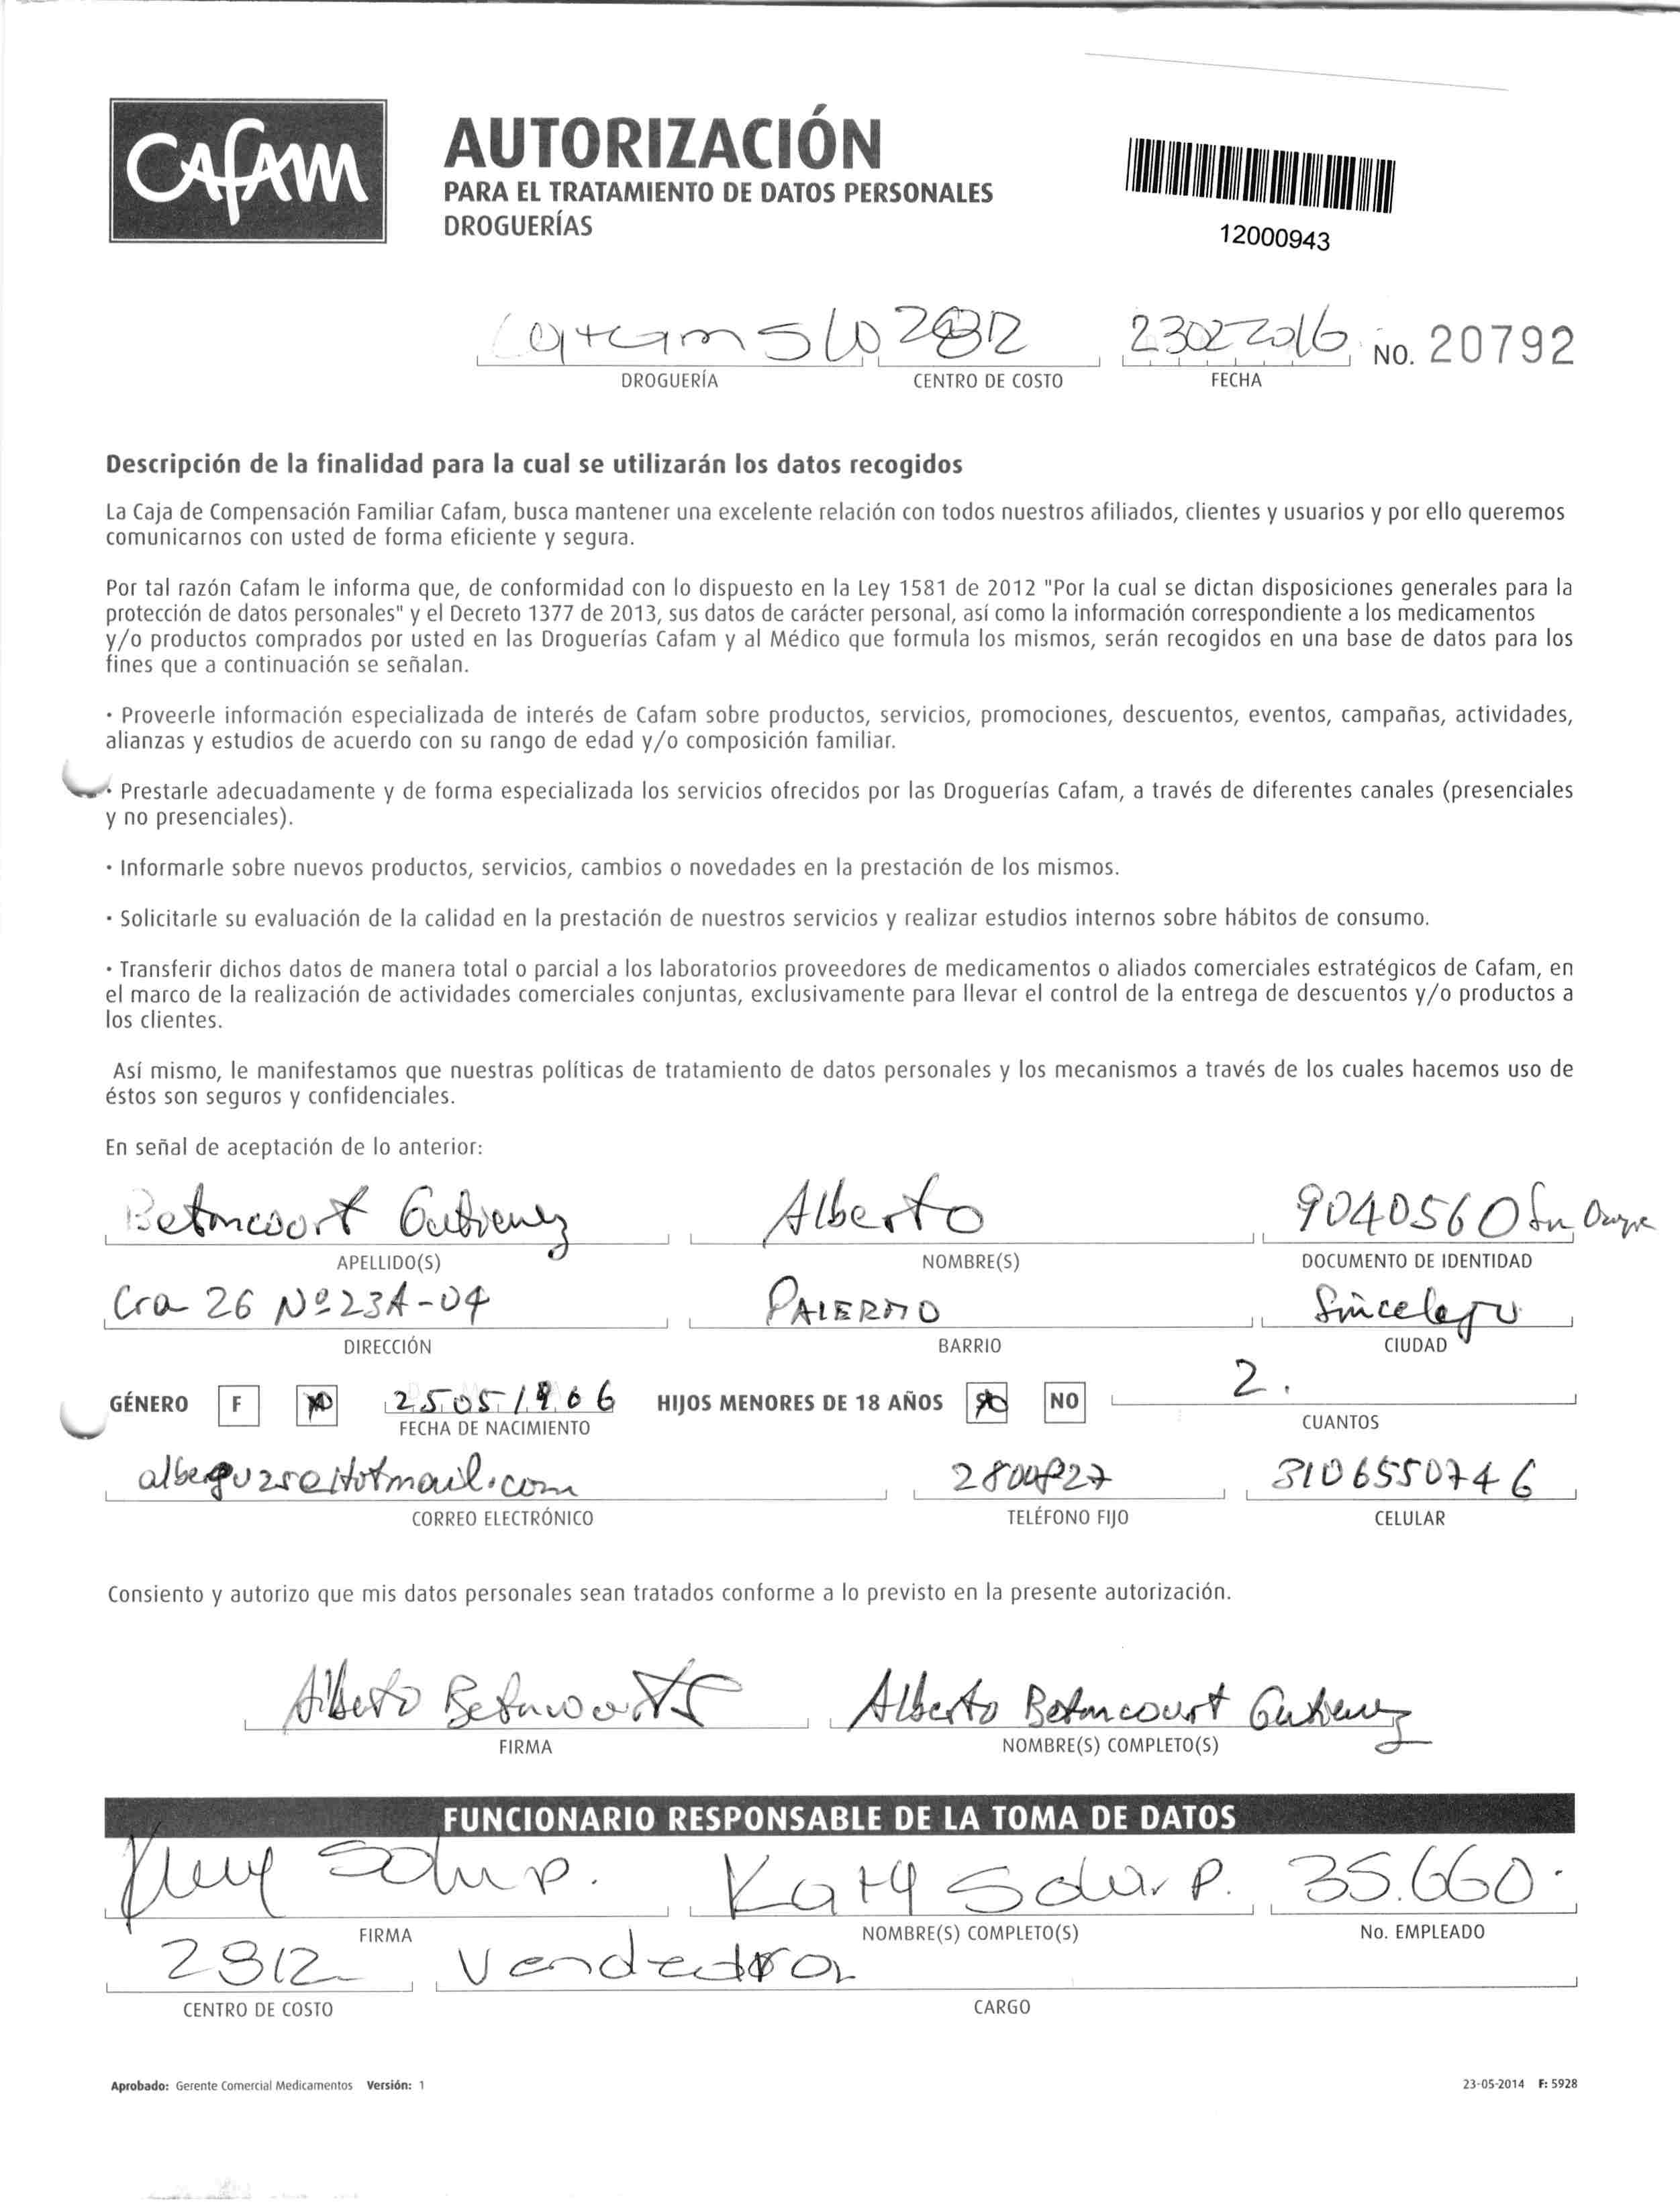 Cafam
AUTORIZACIÓN
PARA EL TRATAMIENTO DE DATOS PERSONALES
DROGUERÍAS
12000943
23022016 NO. 20792
DROGUERÍA CENTRO DE COSTO FECHA
Descripción de la finalidad para la cual se utilizarán los datos recogidos
La Caja de Compensación Familiar Cafam, busca mantener una excelente relación con todos nuestros afiliados, clientes y usuarios y por ello queremos
comunicarnos con usted de forma eficiente y segura.
Por tal razón Cafam le informa que, de conformidad con lo dispuesto en la Ley 1581 de 2012 "Por la cual se dictan disposiciones generales para la
protección de datos personales" y el Decreto 1377 de 2013, sus datos de carácter personal, así como la información correspondiente a los medicamentos
y/o productos comprados por usted en las Droguerías Cafam y al Médico que formula los mismos, serán recogidos en una base de datos para los
fines que a continuación se señalan.
· Proveerle información especializada de interés de Cafam sobre productos, servicios, promociones, descuentos, eventos, campañas, actividades,
alianzas y estudios de acuerdo con su rango de edad y/o composición familiar.
· Prestarle adecuadamente y de forma especializada los servicios ofrecidos por las Droguerías Cafam, a través de diferentes canales (presenciales
y no presenciales).
· Informarle sobre nuevos productos, servicios, cambios o novedades en la prestación de los mismos.
· Solicitarle su evaluación de la calidad en la prestación de nuestros servicios y realizar estudios internos sobre hábitos de consumo.
· Transferir dichos datos de manera total o parcial a los laboratorios proveedores de medicamentos o aliados comerciales estratégicos de Cafam, en
el marco de la realización de actividades comerciales conjuntas, exclusivamente para llevar el control de la entrega de descuentos y/o productos a
los clientes.
Así mismo, le manifestamos que nuestras políticas de tratamiento de datos personales y los mecanismos a través de los cuales hacemos uso de
éstos son seguros y confidenciales.
En señal de aceptación de lo anterior:
Betancourt Gutierrez Alberto 9040560
APELLIDO(S) NOMBRE(S) DOCUMENTO DE IDENTIDAD
Cra 26 Nº 23A-04 PALERMO Sincelejo
DIRECCIÓN BARRIO CIUDAD
GÉNERO F 25051966 HIJOS MENORES DE 18 AÑOS NO 2.
FECHA DE NACIMIENTO CUANTOS
2804827 3106550746
CORREO ELECTRÓNICO TELÉFONO FIJO CELULAR
Consiento y autorizo que mis datos personales sean tratados conforme a lo previsto en la presente autorización.
Alberto Betancourt G Alberto Betancourt Gutierrez
FIRMA NOMBRE(S) COMPLETO(S)
FUNCIONARIO RESPONSABLE DE LA TOMA DE DATOS
Katy P. 35.660.
FIRMA NOMBRE(S) COMPLETO(S) No. EMPLEADO
2812 Vendedor
CENTRO DE COSTO CARGO
Aprobado: Gerente Comercial Medicamentos Versión: 1 23-05-2014 F: 5928